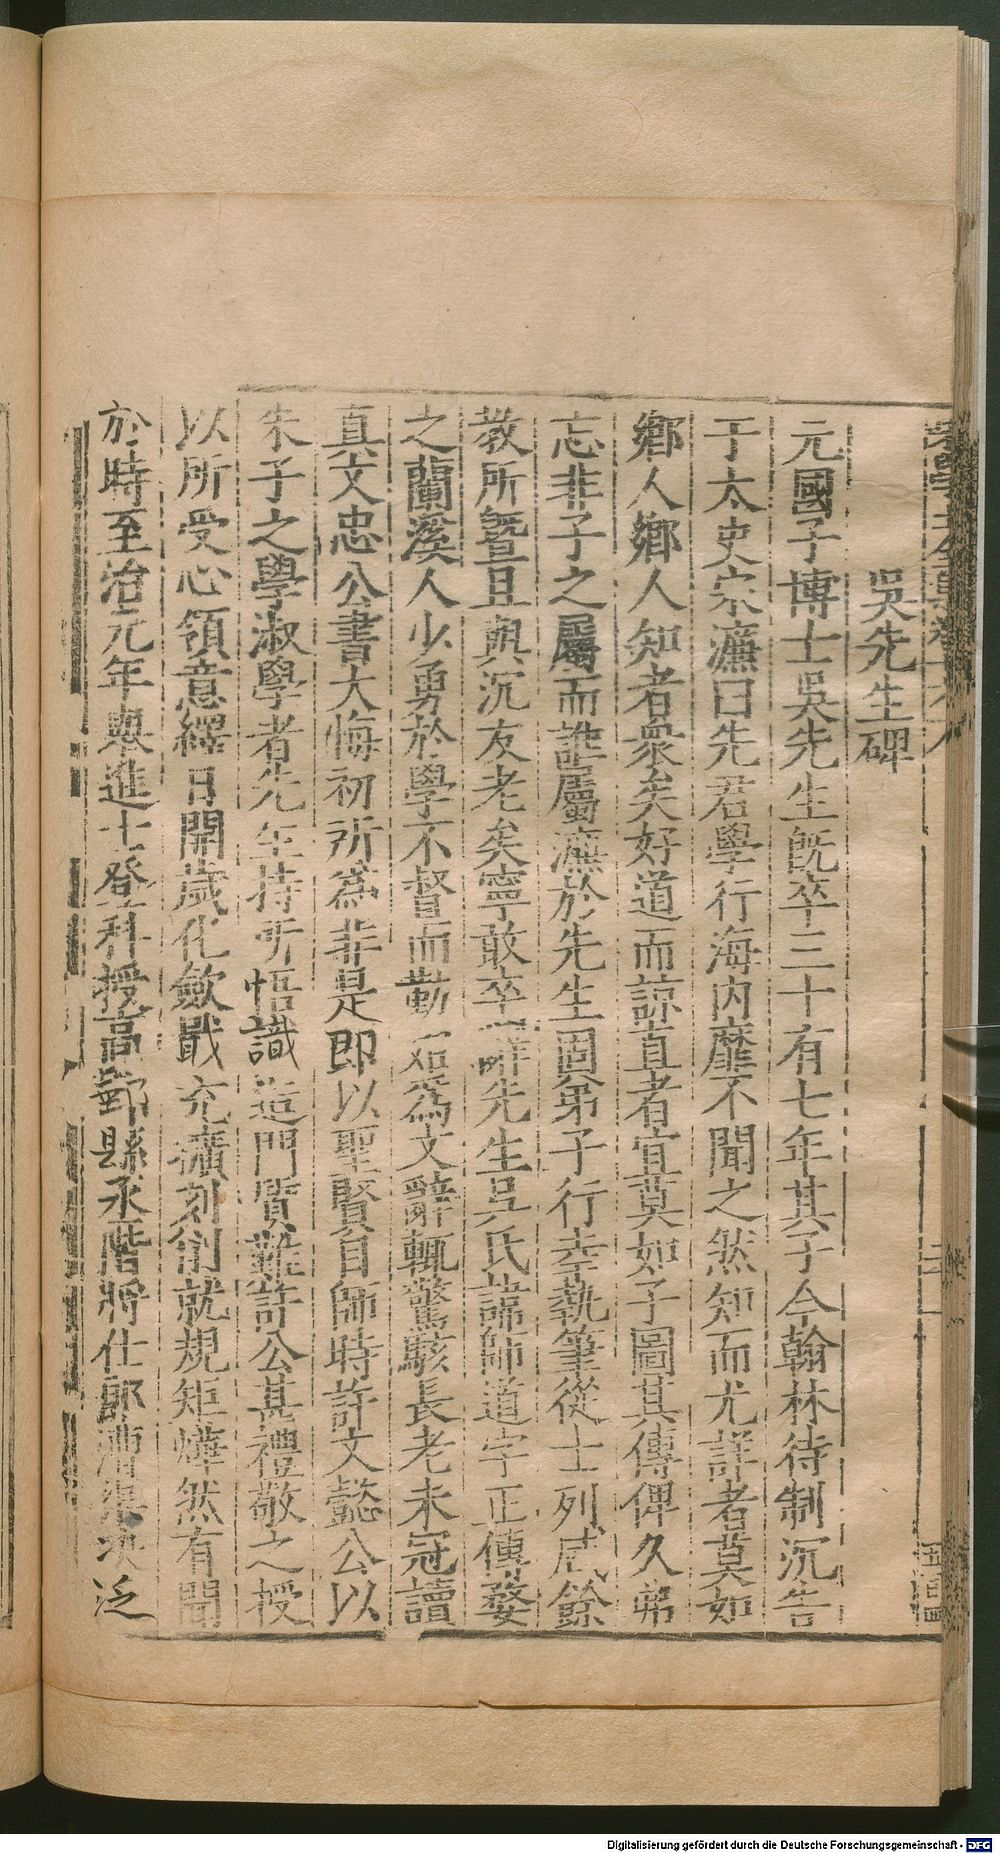 吳先生碑
元國子博士吳先生既卒三十有七年其子今翰林待制沉告
于太史宋濂曰先君學行海内靡不聞之然知而尤詳者莫如
鄉人鄉人知者衆矣好道而諒直者宜莫如子圖其傳俾久弗
忘非子之屬而誰屬濂於先生固弟子行幸執筆從士列咸餘
教所曁且與沉友老矣寧敢卒辭先生吳氏諱師道字正傳婺
之蘭溪人少勇於學不督而勤始爲文辭輒驚駭長老未冠讀
真文忠公書大悔初所爲非是即以聖賢自師時許文懿公以
朱子之學淑學者先生持所悟識造門質難許公甚禮敬之授
以所受心領意繹日開歲化斂戢充擴刻削就規矩燁然有聞
於時至治元年舉進士登科授高郵縣丞階將仕郎漕渠決泛
Digitalisierung gefördert durch die Deutsche Forschungsgemeinschaft - DFG